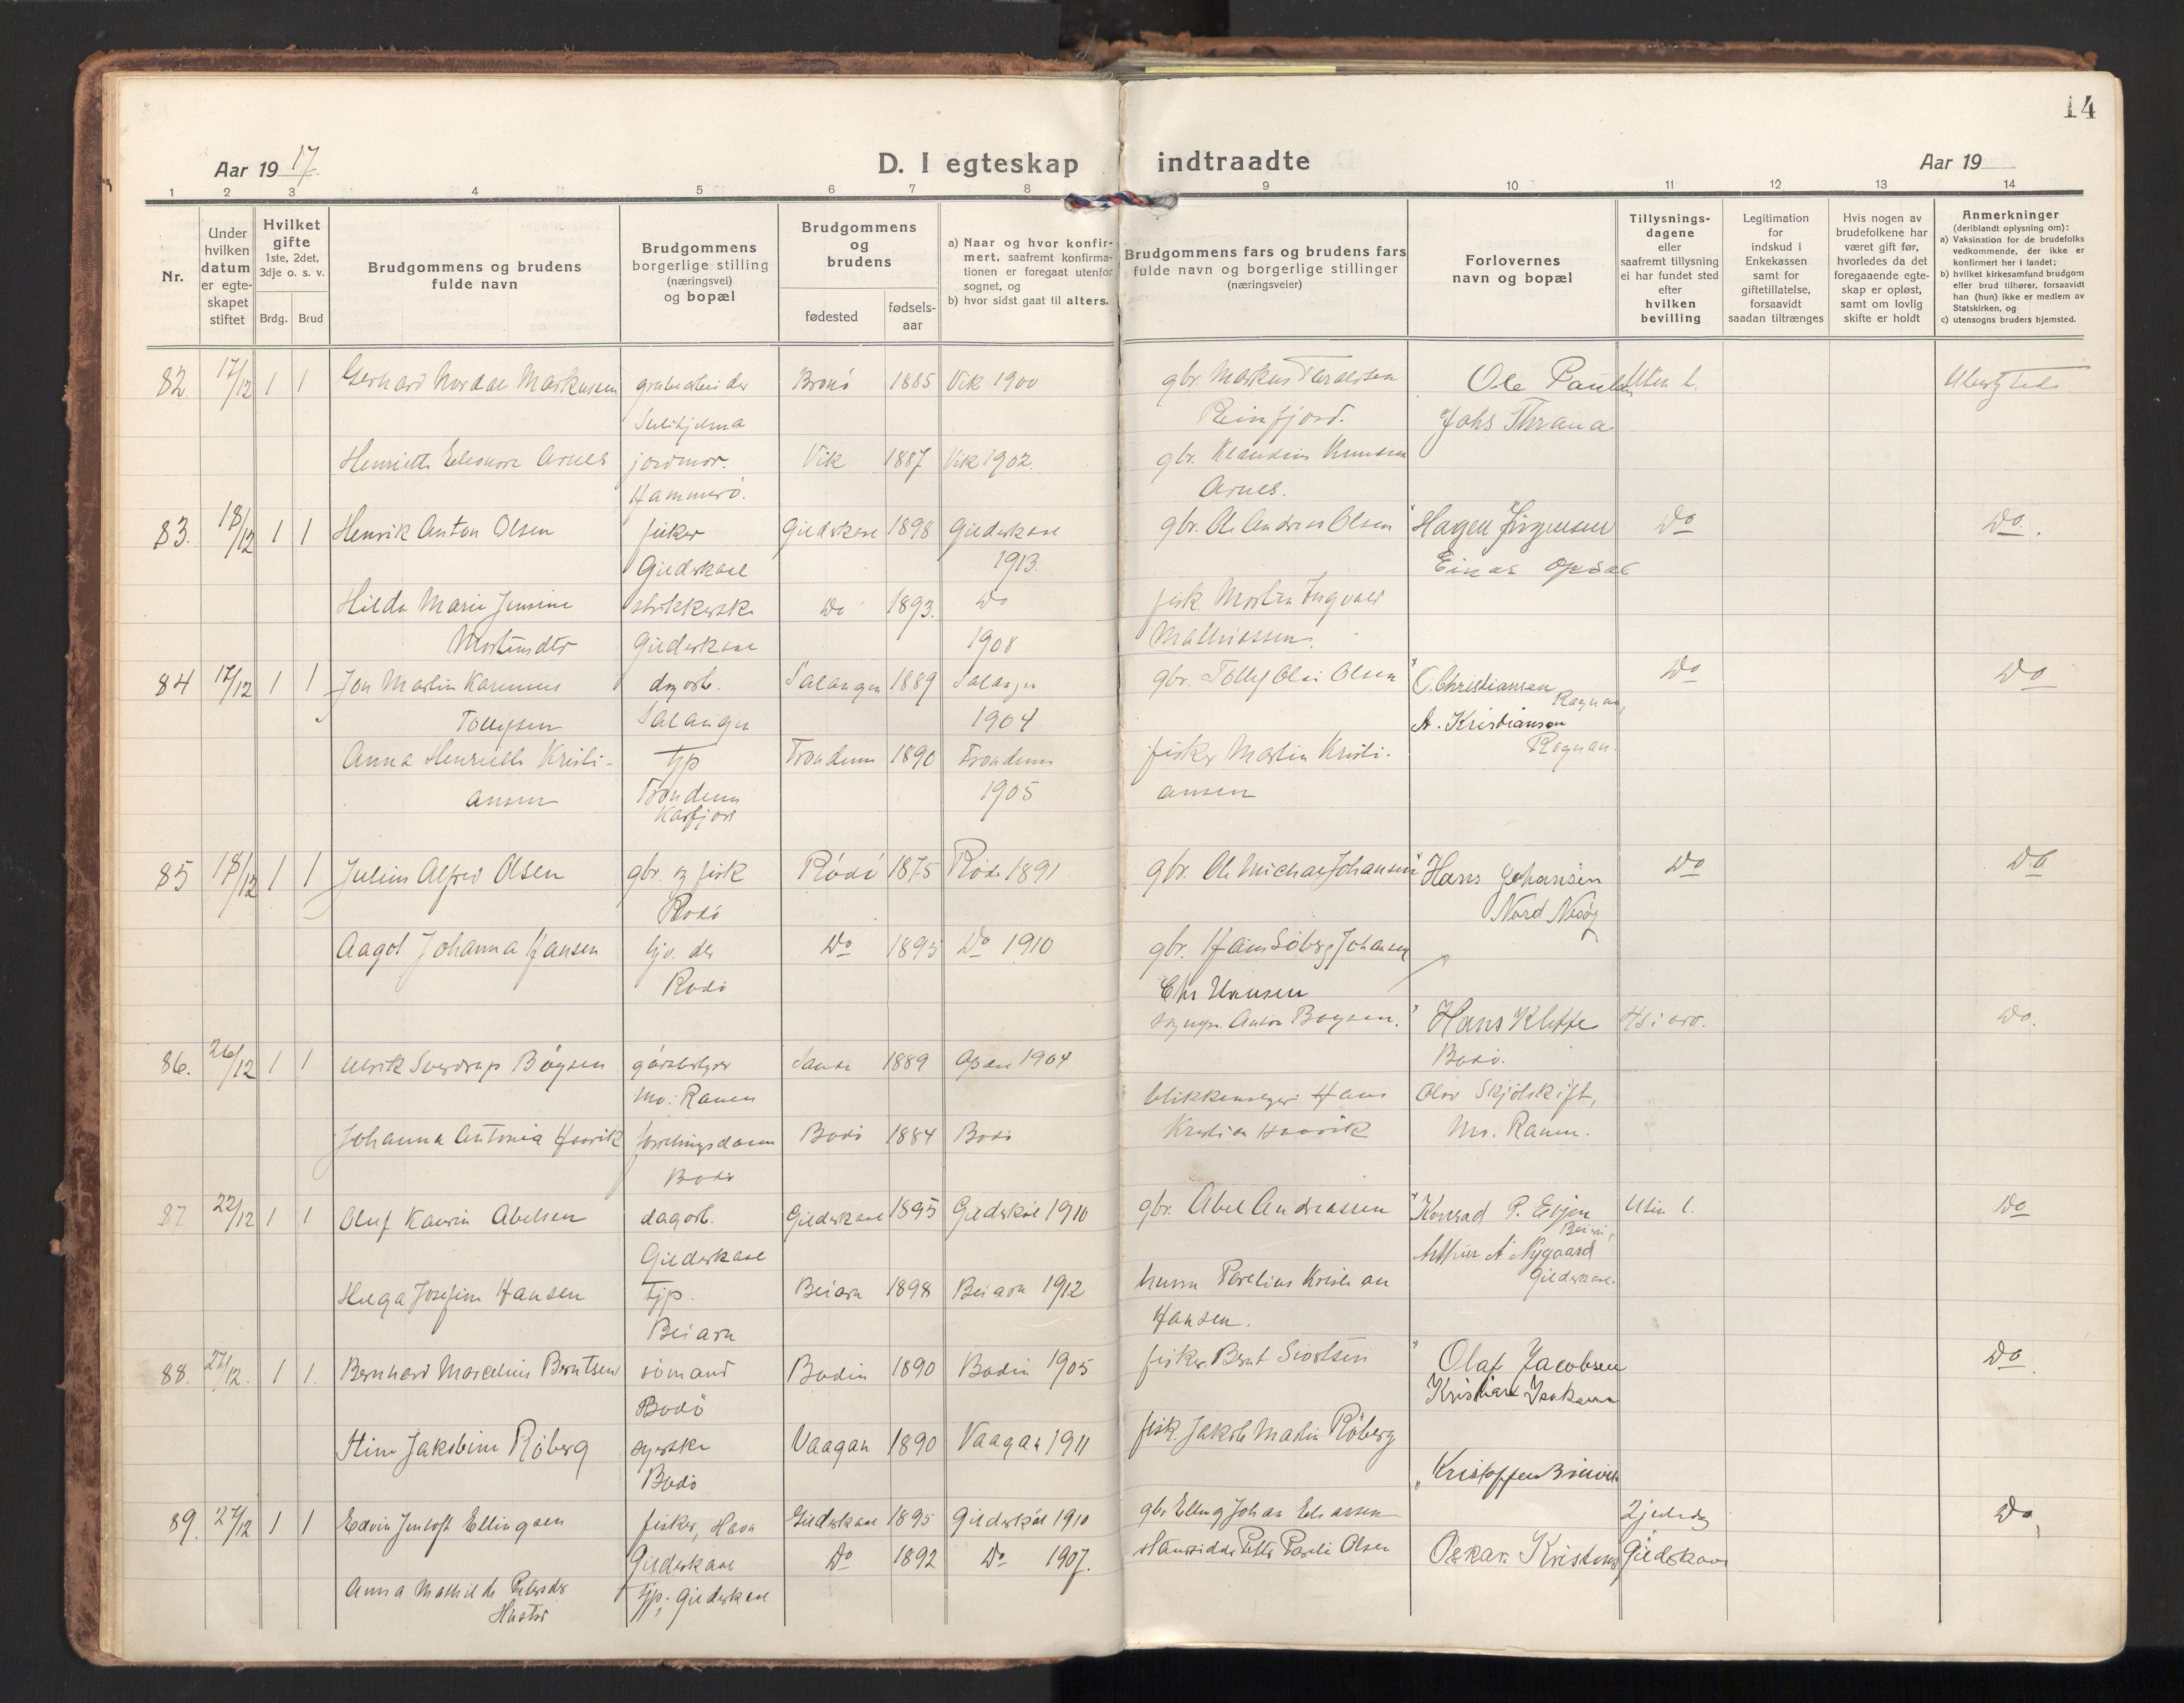 14
Aar 19 17.
D. I egteskap indtraadte
Aar 19
1 2 3 4 5 6 7 8 9 10 11 12 13 14
Nr.
Under hvilken datum er egteskapet stiftet
Hvilket gifte 1ste, 2det, 3dje o. s. v.
Brdg. Brud
Brudgommens og brudens fulde navn
Brudgommens borgerlige stilling (næringsvei) og bopæl
Brudgommens og brudens
fødested
fødsels-aar
a) Naar og hvor konfirmert, saafremt konfirmationen er foregaat utenfor sognet, og
b) hvor sidst gaat til alters.
Brudgommens fars og brudens fars fulde navn og borgerlige stillinger (næringsveier)
Forlovernes navn og bopæl
Tillysningsdagene eller saafremt tillysning ei har fundet sted efter hvilken bevilling
Legitimation for indskud i Enkekassen samt for giftetillatelse, forsaavidt saadan tiltrænges
Hvis nogen av brudefolkene har været gift før, hvorledes da det foregaaende egteskap er opløst, samt om lovlig skifte er holdt
Anmerkninger (deriblandt oplysning om):
a) Vaksination for de brudefolks vedkommende, der ikke er konfirmert her i landet;
b) hvilket kirkesamfund brudgom eller brud tilhører, forsaavidt han (hun) ikke er medlem av Statskirken, og
c) utensogns bruders hjemsted.
82 17/12 1 1 Gerhard Nordal Markussen grubearbeider Brønø 1885 Vik 1900 gbr. Markus Taraldsen Ole Paulsen
Sulitjelma Reinfjord. Johs Thrana
Henriette Eleonore Arnes jordmor. Vik 1887 Vik 1902. gbr. Klaudius Knudsen
Hammerø. Arnes.
83. 18/12 1 1 Henrik Anton Olsen fisker Gildeskaal 1898 Gildeskaal gbr. Ole Andreas Olsen Hagen Jørgensen Do Do.
Gildeskaal 1913. Einar Opsal
Hilda Marie Jensine strikkerske Do 1893. Do fisk. Morten Ingvald
Mortensdtr Gildeskaal 1908 Mathiassen.
84 17/12 1 1 Jon Martin Karenius dagarb. Salangen 1889 Salangen gbr. Tollef Olai Olsen C. Christiansen Do Do
Rognan,
Tollefsen Salangen 1904 A. Kristiansen
Anna Henriette Kristi- tjp Trondenes 1890 Trondenes fisker Martin Kristi- Rognan.
ansen Trondenes 1905 ansen
Kasfjord
85 18/12 1 1 Julius Alfred Olsen gbr. og fisk Rødø 1875 Rødø 1891 gbr. Ole Michael Johansen Hans Johansen Do Do
Rødø Nord Nesøy
Aagot Johanna Hansen Do 1895 Do 1910 gbr. Hans Søberg Johansen
Rødø
Chr Hansen
Anton Bøgsen. Hans Kleppe Do.
86. 26/12 1 1 Ulrik Sverdrup Bøgsen gårdbruger Sande 1889 1904 Bodø.
Mo: Ranen blikkenslager Hans Olav Skjølskift,
Johanna Antonia Haavik forretningsdame Bodø 1884 Bodø Kristian Haavik Mo. Ranen.
Bodø
87 22/12 1 1 Oluf Kaurin Abelsen dagarb. Gildeskaal 1895 Gildeskål 1910 gbr. Abel Andreassen Konrad P. Evjen Do
Beiarn,
Gildeskaal Arthur A Nygaard
Gildeskaal.
Helga Josefine Hansen Tjp. Beiarn 1898 Beiarn 1912 Parelius Kristian
Beiarn Hansen.
88. 27/12. 1 1. Bernhard Marcelius Berntsen sømand Bodin 1890 Bodin 1905 fisker Bernt Sivertsen Olaf Jacobsen Do
Bodø Kristian Isaksen
Stine Jakobine Røberg syerske Vaagan 1890 Vaagan 1911 fisk. Jakob Martin Røberg
Bodø
Kristoffer
89. 27/12 1 1 Edvin Jentoft Ellingsen fisker, Havn Gildeskaal 1895 Gildeskål 1910 gbr Elling Johan Eliassen 2 juledag Do
Gildeskaal Do 1892 Do 1907. Petter Pareli Olsen Oskar Gildeskaal
Anna Mathilde Petersdr tjp. Gildeskaal